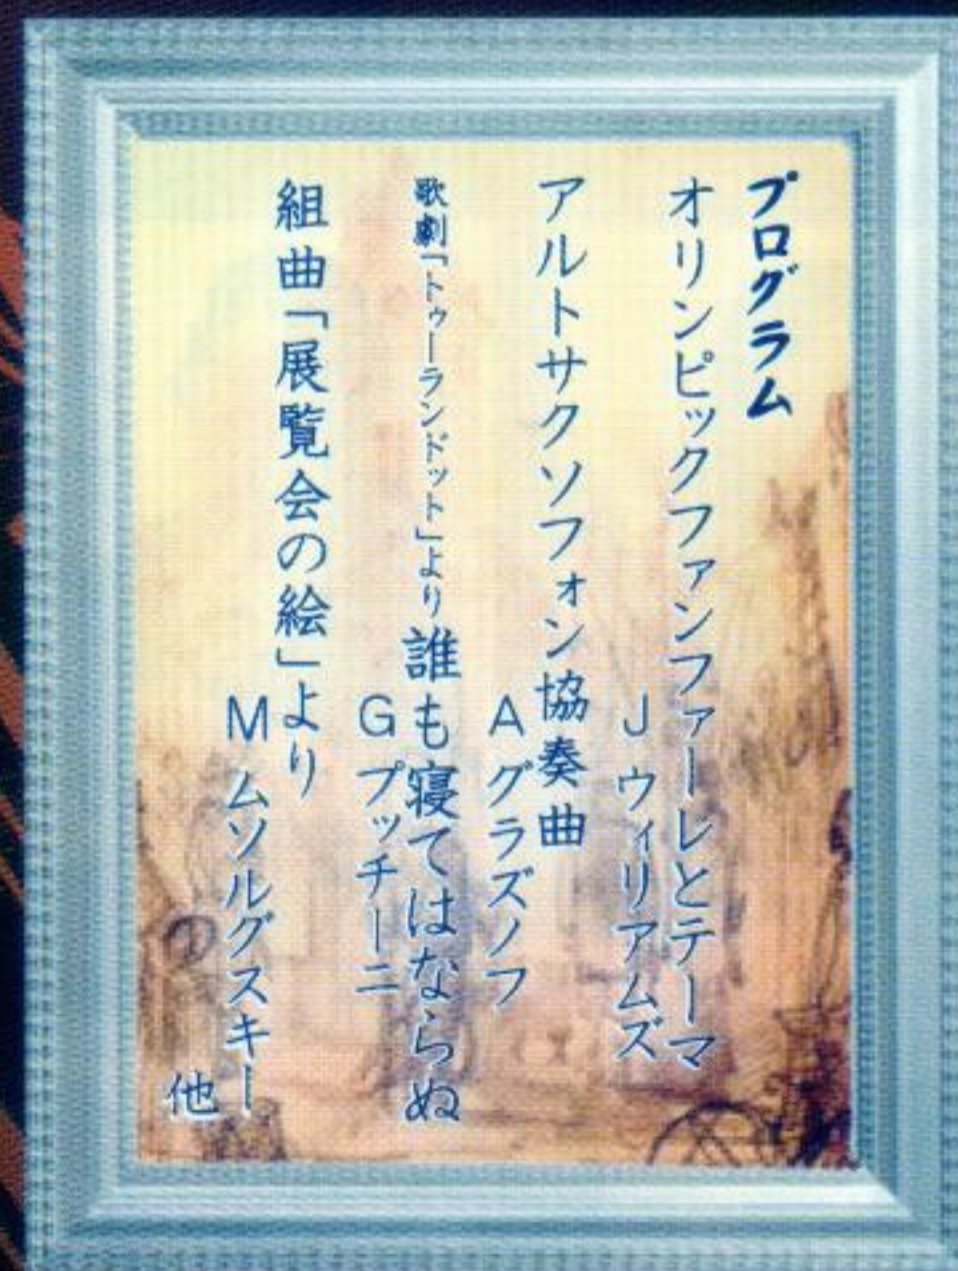 プログラム
オリンピックファンファーレとテーマ
J ウィリアムズ
アルトサクソフォン協奏曲
A グラズノフ
歌劇「トゥーランドット」より誰も寝てはならぬ
G プッチーニ
組曲「展覧会の絵」より
M ムソルグスキー
他